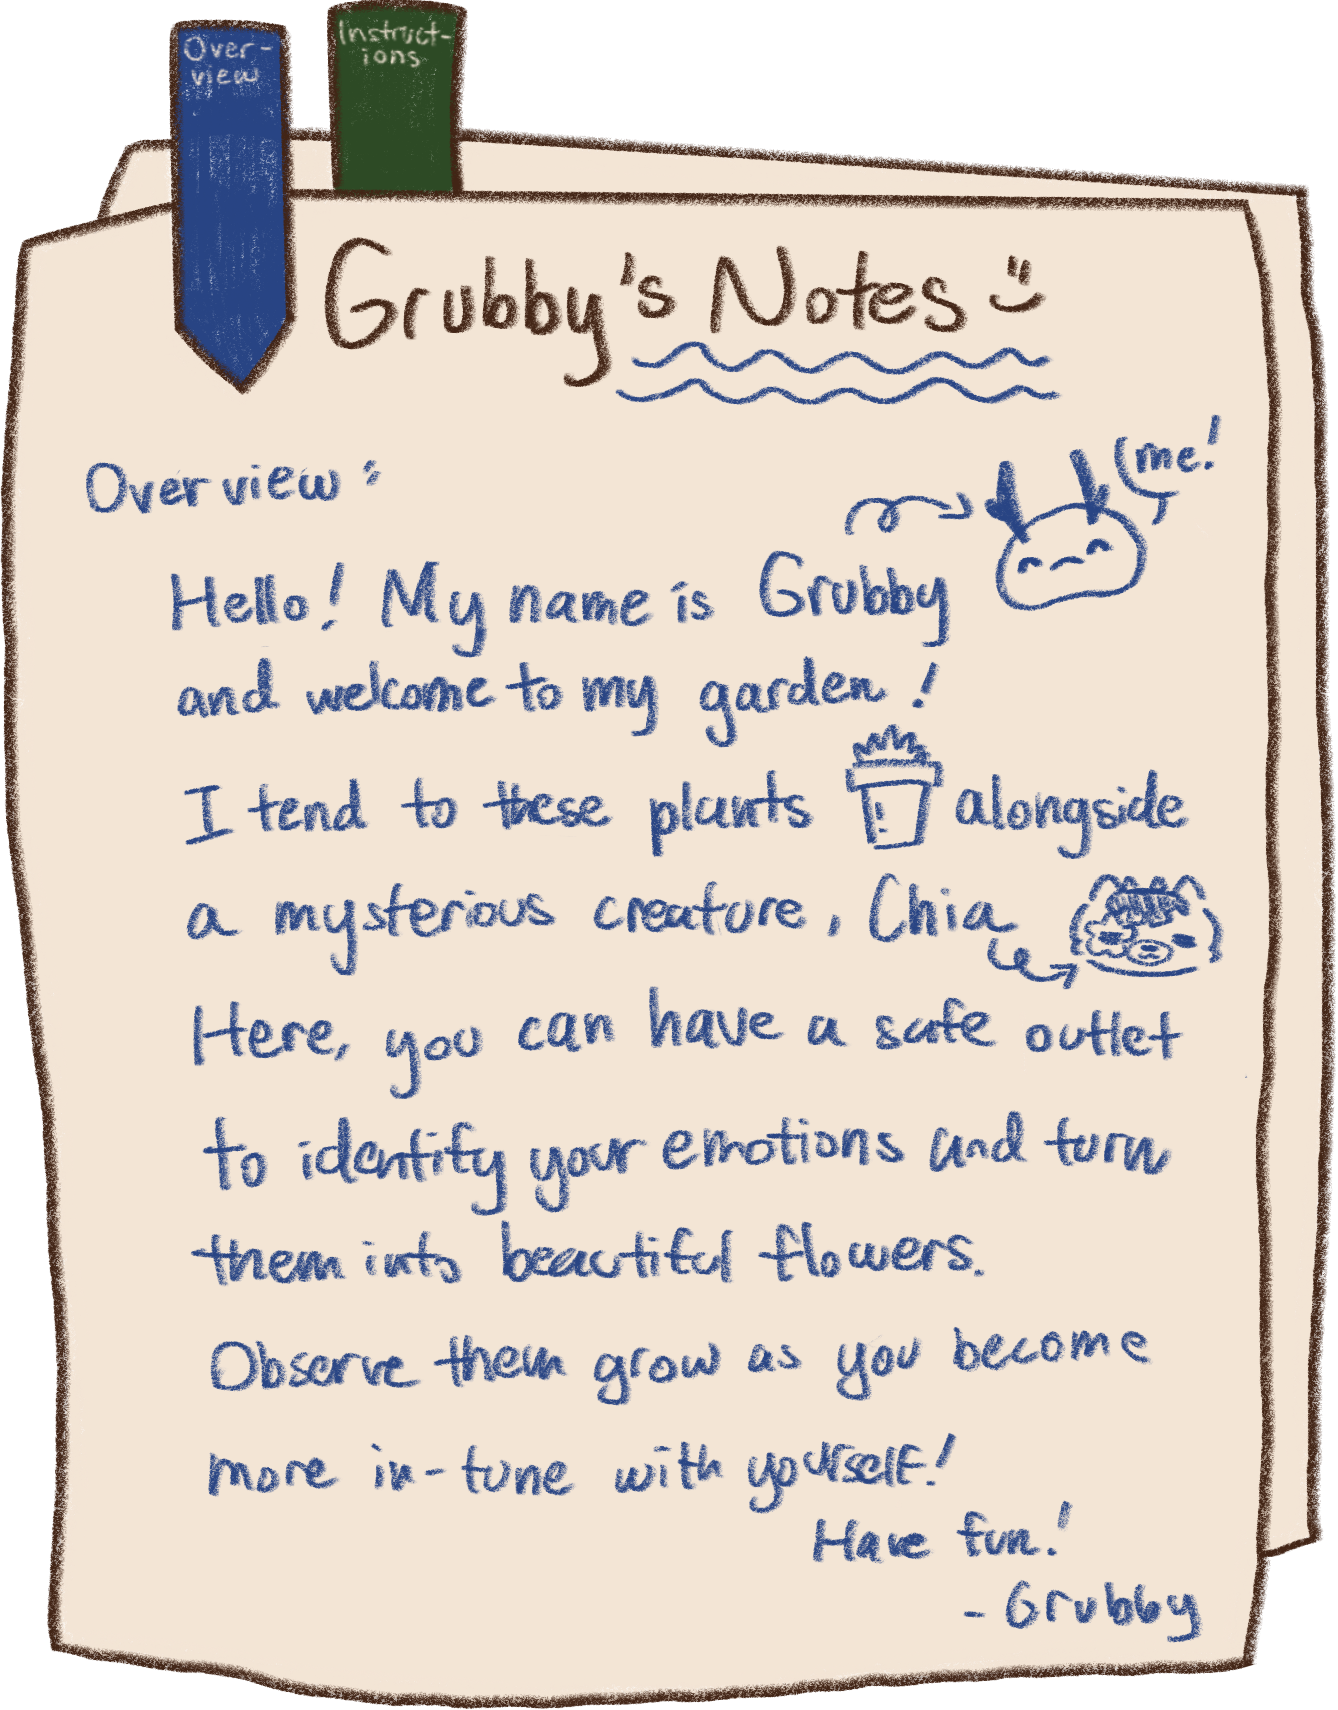 Over-
view
Instruct-
ions
Grubby's Notes
Overview:
(me!
Hello! My name is Grubby
and welcome to my garden!
I tend to these plants alongside
a mysterious creature, Chia
Here, you can have a safe outlet
to identify your emotions and turn
them into beautiful flowers.
Observe them grow as you become
more in-tune with yourself!
Have fun!
- Grubby